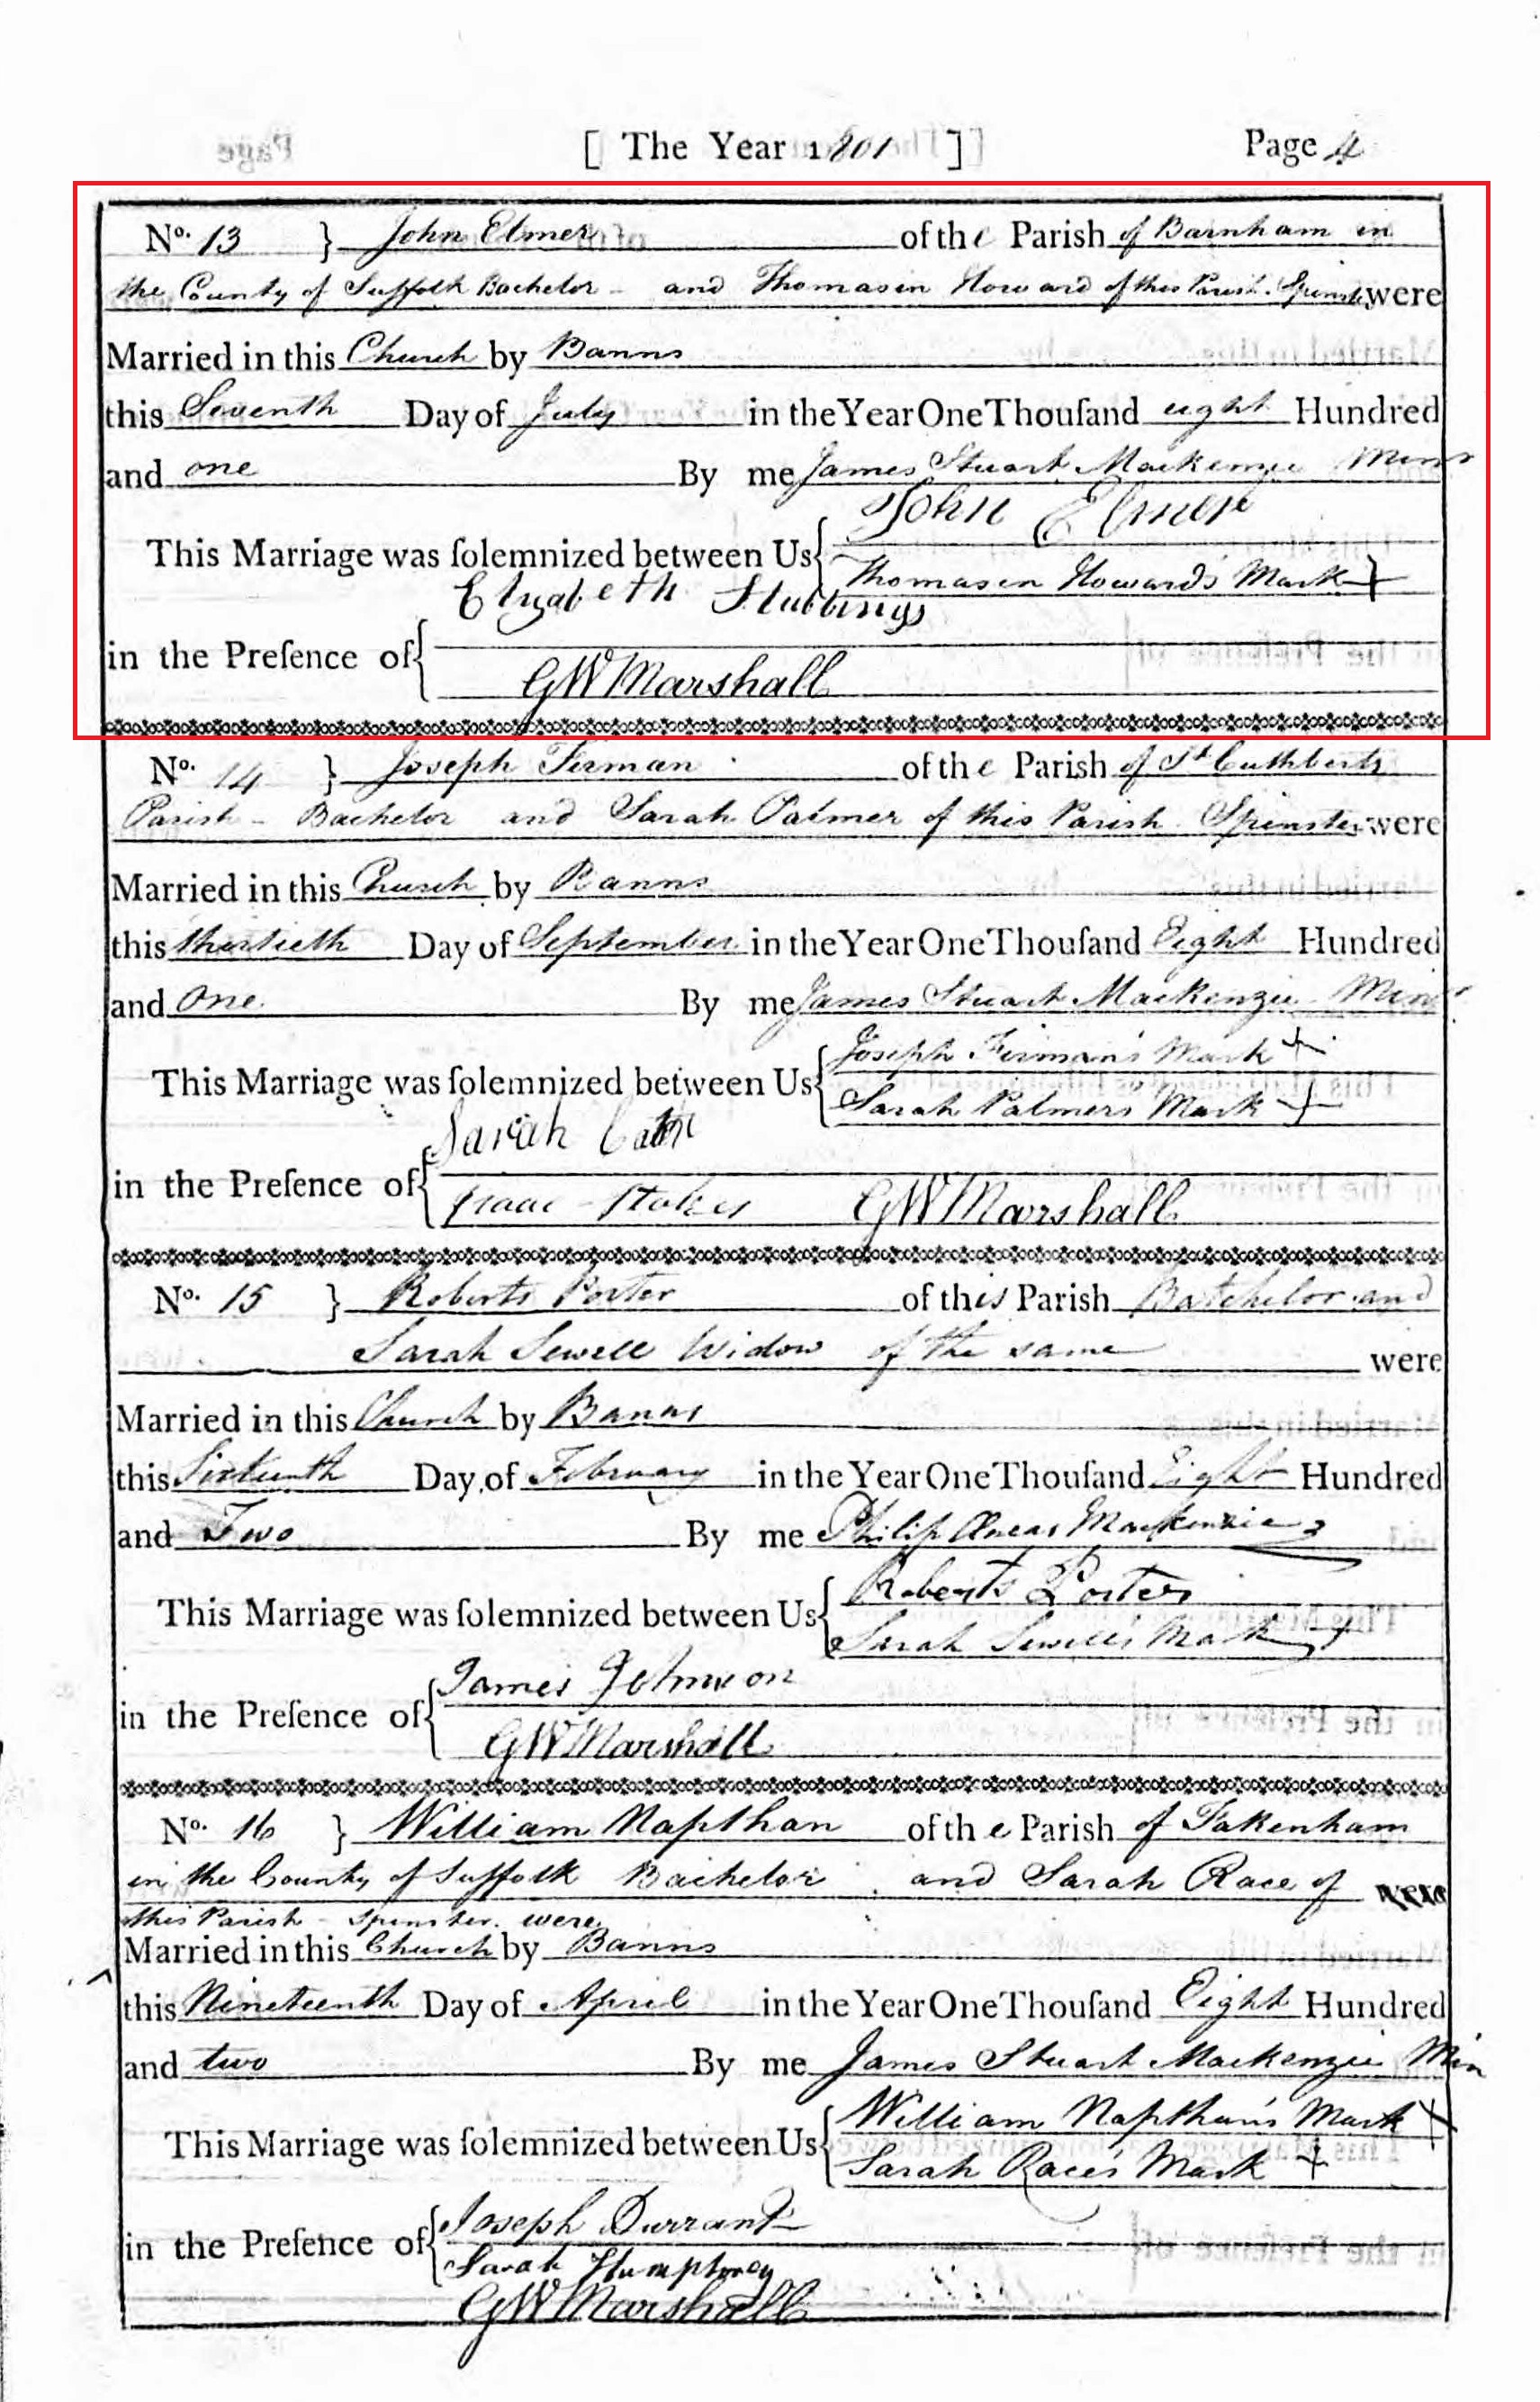 [ The Year 1801 ] Page 4
No. 13 } John Elmer of the Parish of Barnham in
the County of Suffolk Bachelor - and Thomasin Howard of this Parish. Spinster were
Married in this Church by Banns
this Seventh Day of July in the Year One Thouſand eight Hundred
and one By me James Stuart Mackenzie Minr
John Elmer
This Marriage was ſolemnized between Us {
Thomasin Howard's Mark +
Elizabeth Stubbings
in the Preſence of {
GWMarshall
No. 14 } Joseph Firman of the Parish of St Cuthberts
Parish - Bachelor and Sarah Palmer of this Parish Spinster were
Married in this Church by Banns
this thirtieth Day of September in the Year One Thouſand Eight Hundred
and One. By me James Stuart Mackenzie Minr
Joseph Firman's Mark +
This Marriage was ſolemnized between Us {
Sarah Palmers Mark +
Sarah
in the Preſence of {
Isaac Stokes GWMarshall
No. 15 } Roberts Porter of this Parish Batchelor and
Sarah Sewell Widow of the same were
Married in this Church by Banns
this Sixteenth Day of February in the Year One Thouſand Eight Hundred
and Two By me Philip Æneas Mackenzie
Roberts Porter
This Marriage was ſolemnized between Us {
Sarah Sewell's Mark +
James Johnson
in the Preſence of {
GWMarshall
No. 16 } William Napthan of the Parish of Fakenham
in the County of Suffolk Bachelor and Sarah Race of were
this Parish - Spinster. were
Married in this Church by Banns
this Nineteenth Day of April in the Year One Thouſand Eight Hundred
and two By me James Stuart Mackenzie Min
William Napthan's Mark +
This Marriage was ſolemnized between Us {
Sarah Race's Mark +
Joseph Durrant
in the Preſence of {
Sarah Humphrey
GWMarshall